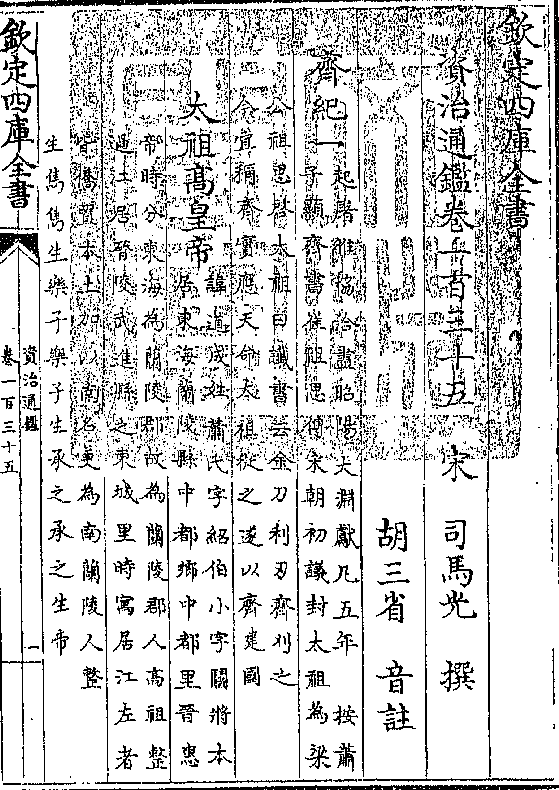 欽定四庫全書
資治通鑑卷一百三十五
宋 司馬光 撰
胡三省 音註
齊紀一
起屠維協洽盡昭陽大淵獻凡五年 按蕭
子顯齊書崔祖思傳宋朝初議封太祖為梁
公祖思啓太祖曰讖書云金刀利刃齊刈之
今宜稱齊實應天命太祖從之遂以齊建國
太祖高皇帝
諱道成姓蕭氏字紹伯小字鬬將本
居東海蘭陵縣中都鄉中都里晉惠
帝時分東海為蘭陵郡故為蘭陵郡人高祖整
過江居晉陵武進縣之東城里時寓居江左者
皆僑置本土加以南名更為南蘭陵人整
生雋雋生樂子樂子生承之承之生帝
欽定四庫全書
資治通鑑
卷一百三十五
一